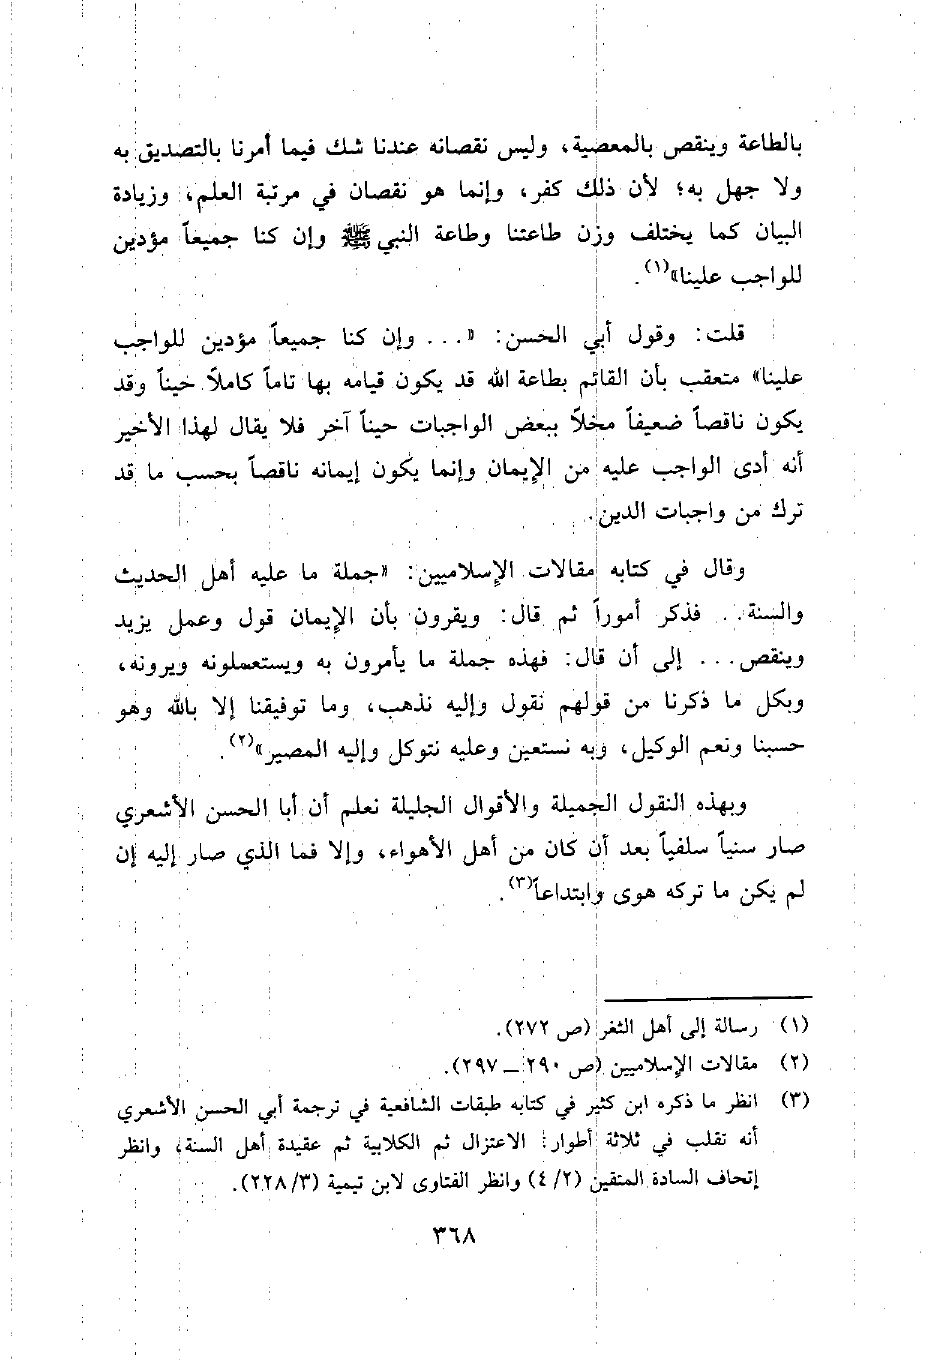 بالطاعة وينقص بالمعصية، وليس نقصانه عندنا شك فيما أمرنا بالتصديق به
ولا جهل به؛ لأن ذلك كفر، وإنما هو نقصان في مرتبة العلم، وزيادة
البيان كما يختلف وزن طاعتنا وطاعة النبي ﷺ وإن كنا جميعاً مؤدين
للواجب علينا»(١).
قلت: وقول أبي الحسن: «... وإن كنا جميعاً مؤدين للواجب
علينا» متعقب بأن القائم بطاعة الله قد يكون قيامه بها تاماً كاملاً حيناً وقد
يكون ناقصاً ضعيفاً مخلاً ببعض الواجبات حيناً آخر فلا يقال لهذا الأخير
أنه أدى الواجب عليه من الإيمان وإنما يكون إيمانه ناقصاً بحسب ما قد
ترك من واجبات الدين.
وقال في كتابه مقالات الإسلاميين: «جملة ما عليه أهل الحديث
والسنة.. فذكر أموراً ثم قال: ويقرون بأن الإيمان قول وعمل يزيد
وينقص... إلى أن قال: فهذه جملة ما يأمرون به ويستعملونه ويرونه،
وبكل ما ذكرنا من قولهم نقول وإليه نذهب، وما توفيقنا إلا بالله وهو
حسبنا ونعم الوكيل، وبه نستعين وعليه نتوكل وإليه المصير»(٢).
وبهذه النقول الجميلة والأقوال الجليلة نعلم أن أبا الحسن الأشعري
صار سنياً سلفياً بعد أن كان من أهل الأهواء، وإلا فما الذي صار إليه إن
لم يكن ما تركه هوى وابتداعاً(٣).
(١) رسالة إلى أهل الثغر (ص ٢٧٢).
(٢) مقالات الإسلاميين (ص ٢٩٠ ــ ٢٩٧).
(٣) انظر ما ذكره ابن كثير في كتابه طبقات الشافعية في ترجمة أبي الحسن الأشعري
أنه تقلب في ثلاثة أطوار: الاعتزال ثم الكلابية ثم عقيدة أهل السنة، وانظر
إتحاف السادة المتقين (٤/٢) وانظر الفتاوى لابن تيمية (٢٢٨/٣).
٣٦٨